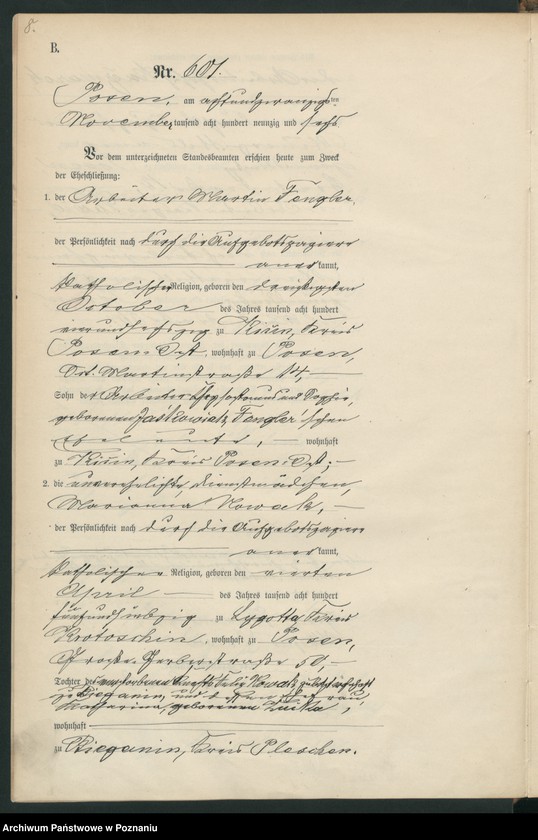 8.
B.
Nr. 601.
Posen, am achtundzwanzigsten
November tausend acht hundert neunzig und sechs
Vor dem unterzeichneten Standesbeamten erschien heute zum Zweck
der Eheschließung:
1. der Arbeiter Martin Fengler,
der Persönlichkeit nach durch die Aufgebotspapiere
anerkannt,
katholischer Religion, geboren den dreißigsten
October des Jahres tausend acht hundert
vierundsechszig zu Kicin, Kreis
Posen Ost, wohnhaft zu Posen,
St. Martinstraße 14,
Sohn der Arbeiter und Sophie,
geborenen Jaskowiak, Fengler'schen
Eheleute, wohnhaft
zu Kicin, Kreis Posen Ost;
2. die unverehelichte, Dienstmädchen,
Marianna Nowak,
der Persönlichkeit nach durch die Aufgebotspapiere
anerkannt,
katholischer Religion, geboren den vierten
April des Jahres tausend acht hundert
fünfundsiebzig zu Lygotta, Kreis
Krotoschin, wohnhaft zu Posen,
Große Gerberstraße 50,
Tochter des verstorbenen Felix Nowak, zuletzt wohnhaft
zu Bieganin, und dessen Ehefrau,
Katharina, geborenen
wohnhaft
zu Bieganin, Kreis Pleschen.
Archiwum Państwowe w Poznaniu